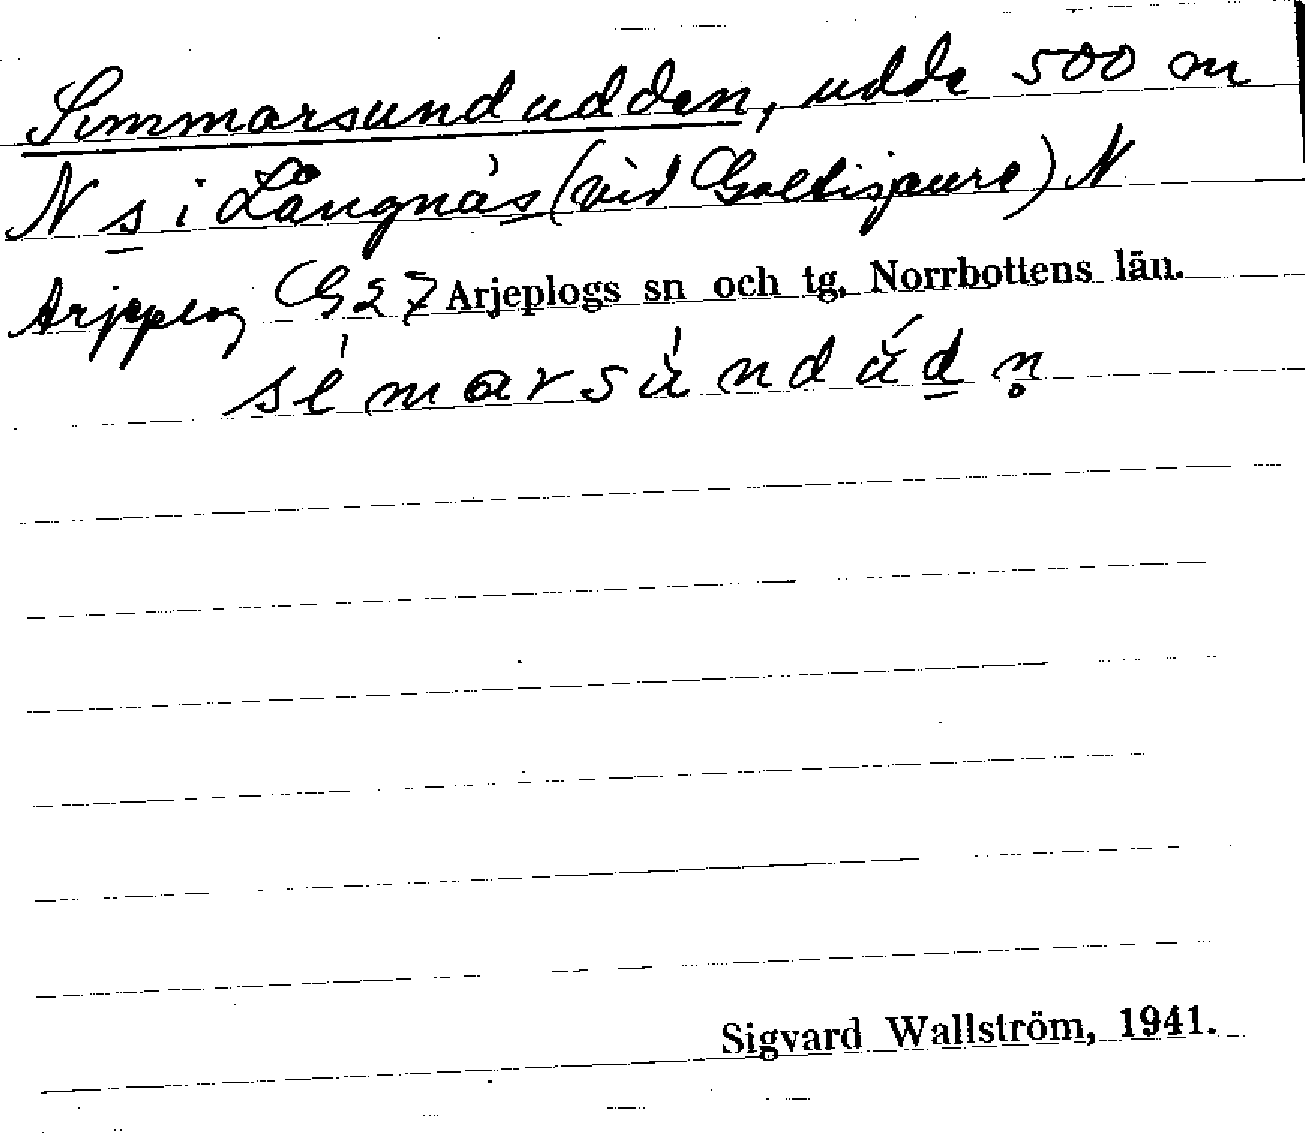 Simmarsundudden, udde 500 m
N s i Långnäs (vid Galtispure) N
Arjeplog G27 Arjeplogs sn och tg, Norrbottens län.
sémarsúndúdn̥
Sigvard Wallström, 1941.